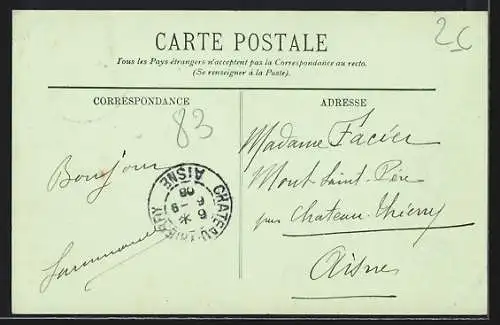 2€
CARTE POSTALE
Tous les Pays étrangers n'acceptent pas la Correspondance au recto.
(Se renseigner à la Poste).
CORRESPONDANCE
83
Bonjour
ADRESSE
Madame Facier
Mont Saint-Père
par Chateau-Thierry
Aisne
CHATEAU-THIERRY
6 - 9
08
AISNE